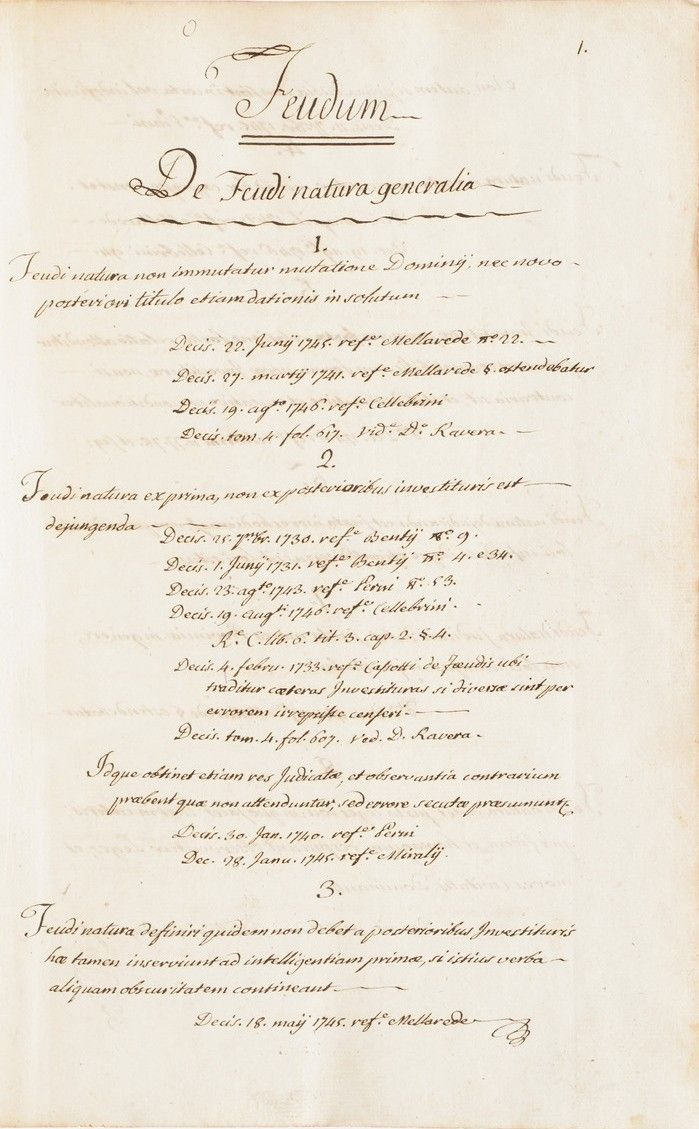 1.
Feudum
De Feudi natura generalia
1.
Feudi natura non immutatur mutatione Dominij, nec novo
posteriori titulo etiam dationis in solutum
Decis. 22. Junij 1745. refe. Mellarede no 22.
Decis. 27. martij 1741. refe. Mellarede §. ostendebatur
Decis. 19. agto 1746. refe. Cellebrini
Decis. tom. 4. fol. 617. vide. Do. Ravera.
2.
Feudi natura ex prima, non ex posterioribus investituris est
dejungenda
Decis. 25. 7br. 1730. refe. Bentij no. 9.
Decis. 1. Junij 1731. refe. Bentij no. 4. e 34.
Decis. 23. agto 1743. refe. Perni no. 53.
Decis. 19. augti 1746. refe. Cellebrini.
Re. C. lib. 6. tit. 3. cap. 2. §. 4.
Decis. 4. febru. 1733. refe. Casotti de foeudis ubi
traditur caeteras Investituras si diversae sint per
errorem irrepsisse censeri.
Decis. tom. 4. fol. 607. ved. D. Ravera.
Idque obtinet etiam res Judicatae, et observantia contrarium
praebent quae non attenduntur, sed errore secutae praesumuntr.
Decis. 30. Jan. 1740. refe. Perni
Dec. 28. Janu. 1745. refe. Miralij.
3.
Feudi natura definiri quidem non debet a posterioribus Investituris
hae tamen inserviunt ad intelligentiam primae, si istius verba
aliquam obscuritatem contineant
Decis. 18. maij 1745. refe. Mellarede